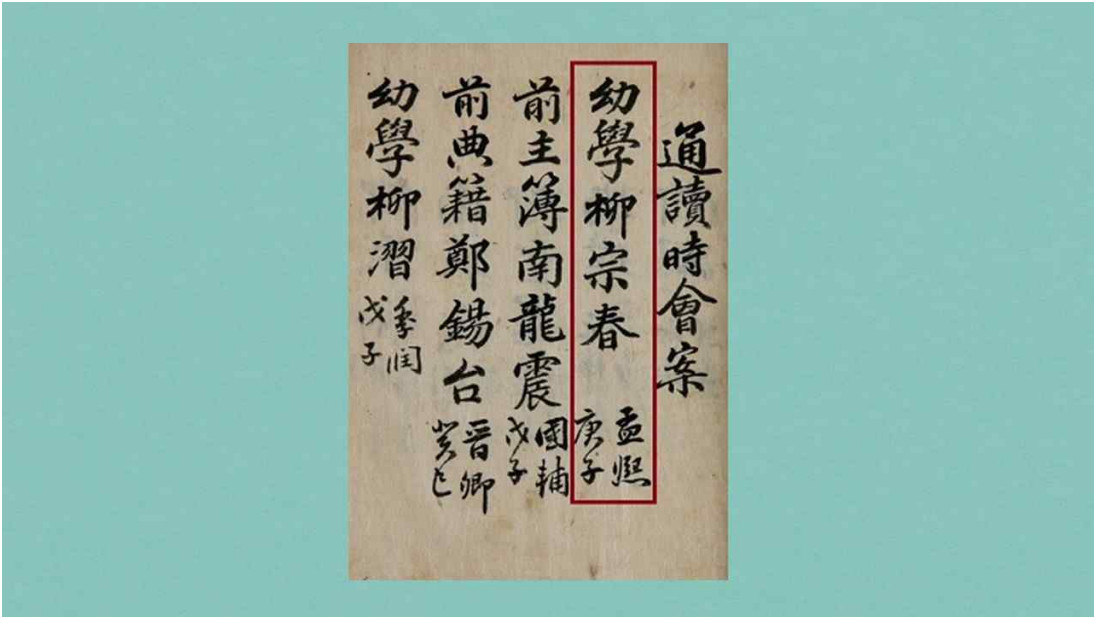 通讀時會案
幼學柳宗春 孟熙 庚子
前主簿南龍震 國輔 戊子
前典籍鄭錫台 晋卿 癸巳
幼學柳溍 季潤 戊子